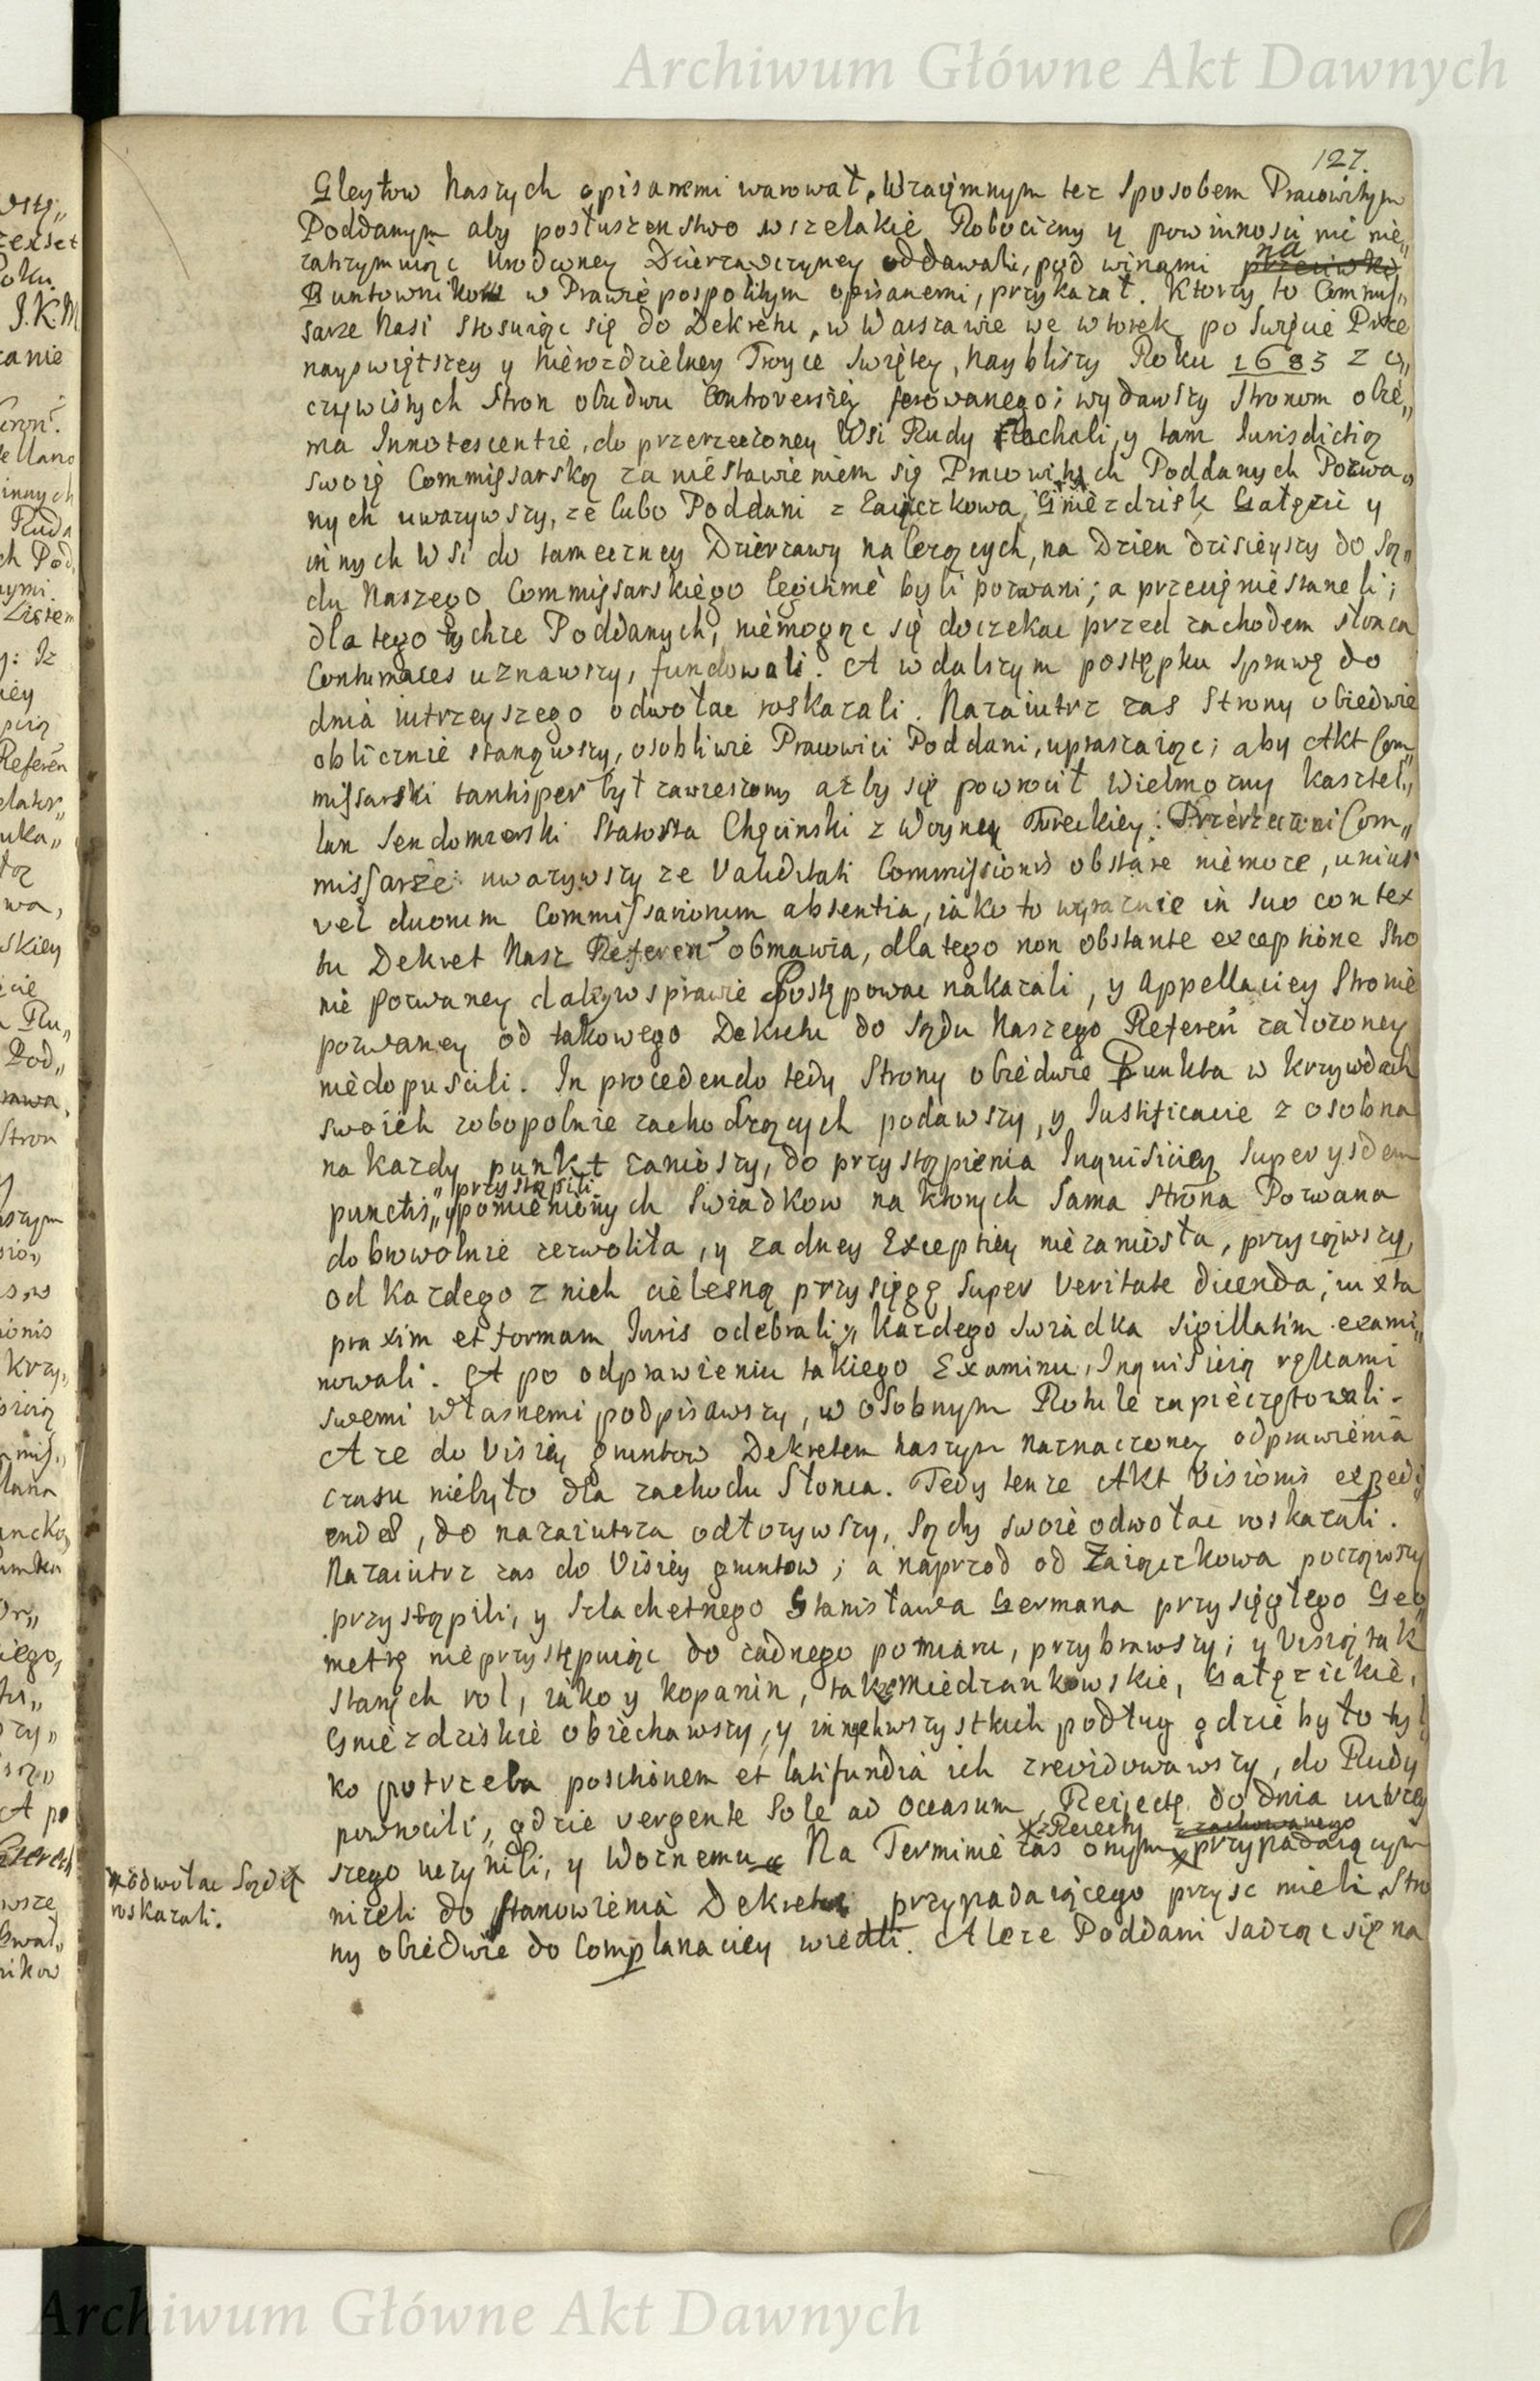 Archiwum Główne Akt Dawnych
127.
Gleytow Naszych opisanemi warował, Wzaiymnym tez sposobem Pracowitym
Poddanym aby posłuszenstwo wszelakie Robocizny y powinnosci nic nie„
zatrzymuiąc Urodzoney Dzierzawczyney oddawali, pod winami na przeciwko
Buntownikow w Prawie pospolitym opisanemi, przykazał. Ktorzy to Commis„
sarze Nasi stosuiąc się do Dekretu, w Warszawie we wtorek po Swięcie Prze
nayswiętszey y Nierozdzielney Troyce Swiętey, Nayblizszy Roku 1683 z o„
czywistych Stron obudwu Controversiey ferowanego; wydawszy Stronom obie„
ma Innotescentie, do przerzeczoney Wsi Rudy ziechali, y tam Iurisdictią
swoię Commissarską za niestawieniem się Pracowitych Poddanych Pozwa„
nych uwazywszy, ze lubo Poddani z Zaiączkowa, Gniezdzisk Gałęzic y
innych Wsi do tameczney Dzierzawy nalezących, na Dzien dzisieyszy do Są„
du Naszego Commissarskiego legitime byli pozwani; a przecię niestaneli;
dla tego tychze Poddanych, niemogąc się doczekac przed zachodem słonca
Contumaces uznawszy, fundowali. A w dalszym postępku Sprawę do
dnia iutrzeyszego odwołac roskazali. Nazaiutrz zas Strony obiedwie
oblicznie stanąwszy, osobliwie Pracowici Poddani, upraszaiąc; aby Akt Com„
missarski tantisper był zawieszony azby się powrocił Wielmozny Kasztel„
lan Sendomirski Starosta Chęcinski z Woyney Tureckiey: Przerzeczeni Com„
missarze uwazywszy ze Validitati Commissionis obstare niemoze, unius
vel duorum Commissariorum absentia, iako to wyraznie in suo contex
tu Dekret Nasz Referen obmawia, dla tego non obstante exceptione Stro
nie pozwaney daley w sprawie Postępowac nakazali, y Appellaciey Stronie
pozwaney od takowego Dekretu do Sądu Naszego Referen załozoney
niedopuscili. In procedendo tedy Strony obiedwie Punkta w krzywdach
swoich zobopolnie zachodzących podawszy, y Iustificacie z osobna
na kazdy punkt zaniosszy, do przystąpienia Inquisiciey super ysdem
punctis„ przystąpili „ y pomienionych Swiadkow na ktorych Sama Strona Pozwana
dobrowolnie zezwoliła, y zadney Exceptiey niezaniosła, przyiąwszy,
od kazdego z nich cielesną przysięgę super Veritate dicenda; iuxta
praxim et formam Iuris odebrali y Kazdego Swiadka sigillatim exami„
nowali. A po odprawieniu takiego Examinu, Inquisicią rękami
swemi własnemi podpisawszy, w osobnym Rotule zapieczętowali.
A ze do Visiey gruntow Dekretem naszym Naznaczoney odprawienia
czasu niebyło dla zachodu Słonca. Tedy tenze Akt Visionis expedi„
endae, do nazaiutrza odłozywszy, Sądy swoie odwołac roskazali.
Nazaiutrz zas do Visiey gruntow; a naprzod od Zaiączkowa począwszy
przystąpili, y Szlachetnego Stanisława Germana przysięgłego Geo„
metrę nieprzystępuiąc do zadnego pomiaru, przybrawszy; y Visią tak
starych rol, iako y kopanin, tak Miedziankowskie, Gałęzickie,
Gniezdziskie obiechawszy, y innych wszystkich podług gdzie było tyl
ko potrzeba positionem et latifundia ich zrevidowawszy, do Rudy
powrocili, gdzie vergente Sole ad Occasum, Reiectę do dnia iutrzey
szego uczynili, y Woznemu Na Terminie zas onym z Reiecty z zachowanego przypadaiącym
odwołac Sądy
roskazali.
nizeli do stanowienia Dekretu przypadaiącego przysc mieli, Stro
ny obiedwie do Complanaciey wiedli. Aleze Poddani sadząc się na
Archiwum Główne Akt Dawnych